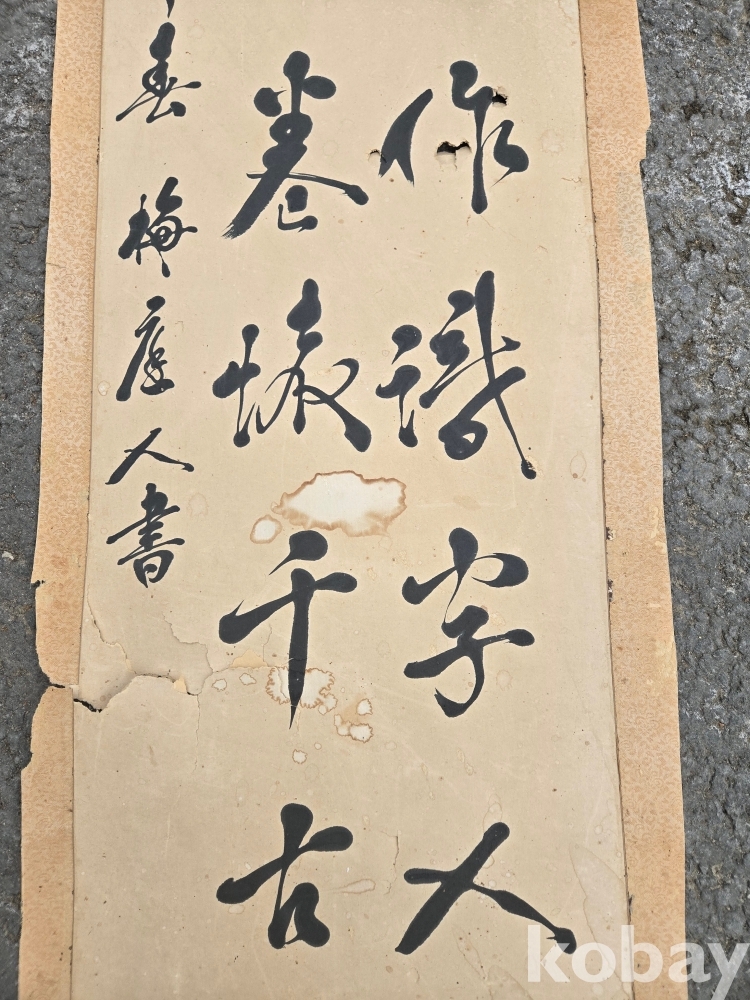 作識字人
卷懷千古
春 梅庭人書
kobay